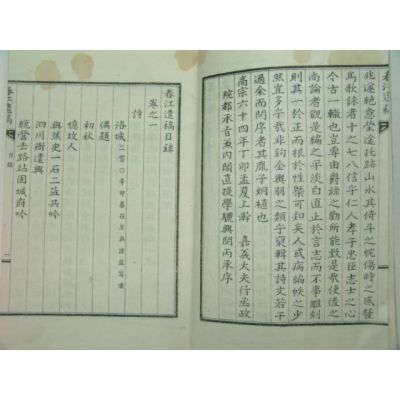 春江遺稿
兆遂絶意榮途托跡山水其倚斗之忱傷時之感發
爲歌詠者十之七八信乎仁人孝子忠臣志士之心
今古一轍也豈專由爵祿之勸所能致是哉使後之
尙論者觀是編之平淡白直止於言志而不事雕刻
則其一於正而不根於性槩可知矣人或病編帙之少
然豈多乎哉非鉤金輿羽之類乎裒輯其詩文若干
過余而問序者其胤子炯植也
高宗六十四年丁卯孟夏上澣 嘉義大夫行丞政
院都承旨兼內閣直提學驪興閔丙承序
春江遺稿目錄
卷之一
詩
洛城二首○辛卯春在
偶題
初秋
憶故人
與蕉史一石二益共吟
泗川樹遣興
統營去路站固城府吟
春江遺稿
目錄
一